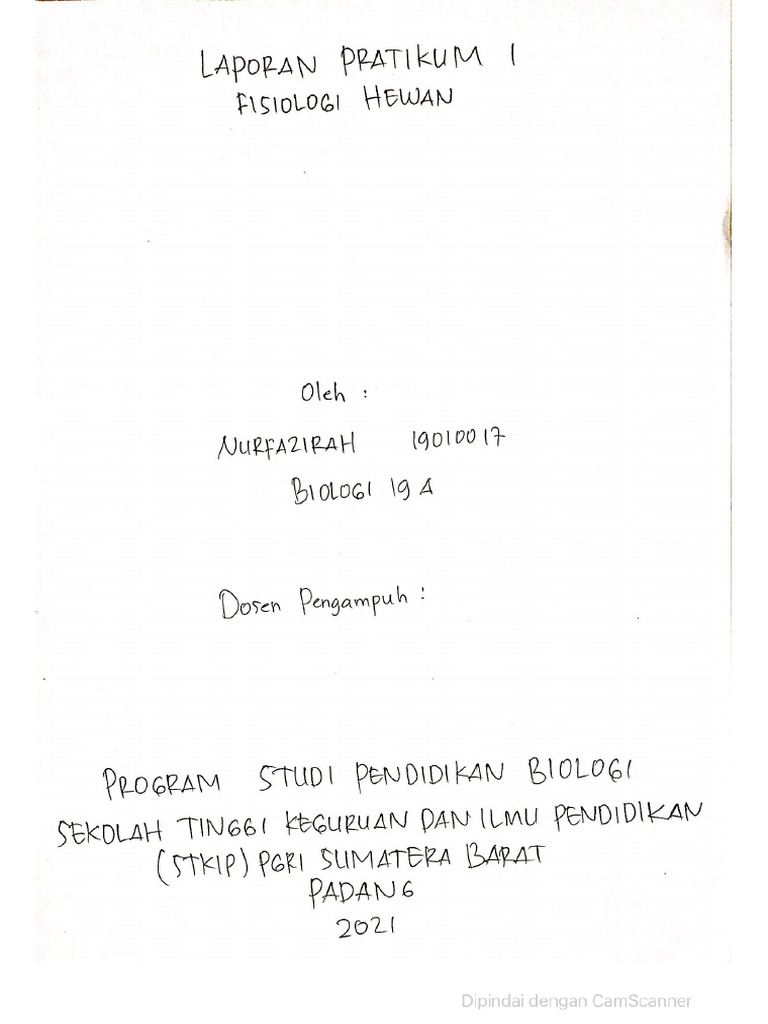 LAPORAN PRATIKUM 1
FISIOLOGI HEWAN
Oleh :
NURFAZIRAH 19010017
BIOLOGI 19 A
Dosen Pengampuh :
PROGRAM STUDI PENDIDIKAN BIOLOGI
SEKOLAH TINGGI KEGURUAN DAN ILMU PENDIDIKAN
(STKIP) PGRI SUMATERA BARAT
PADANG
2021
Dipindai dengan CamScanner